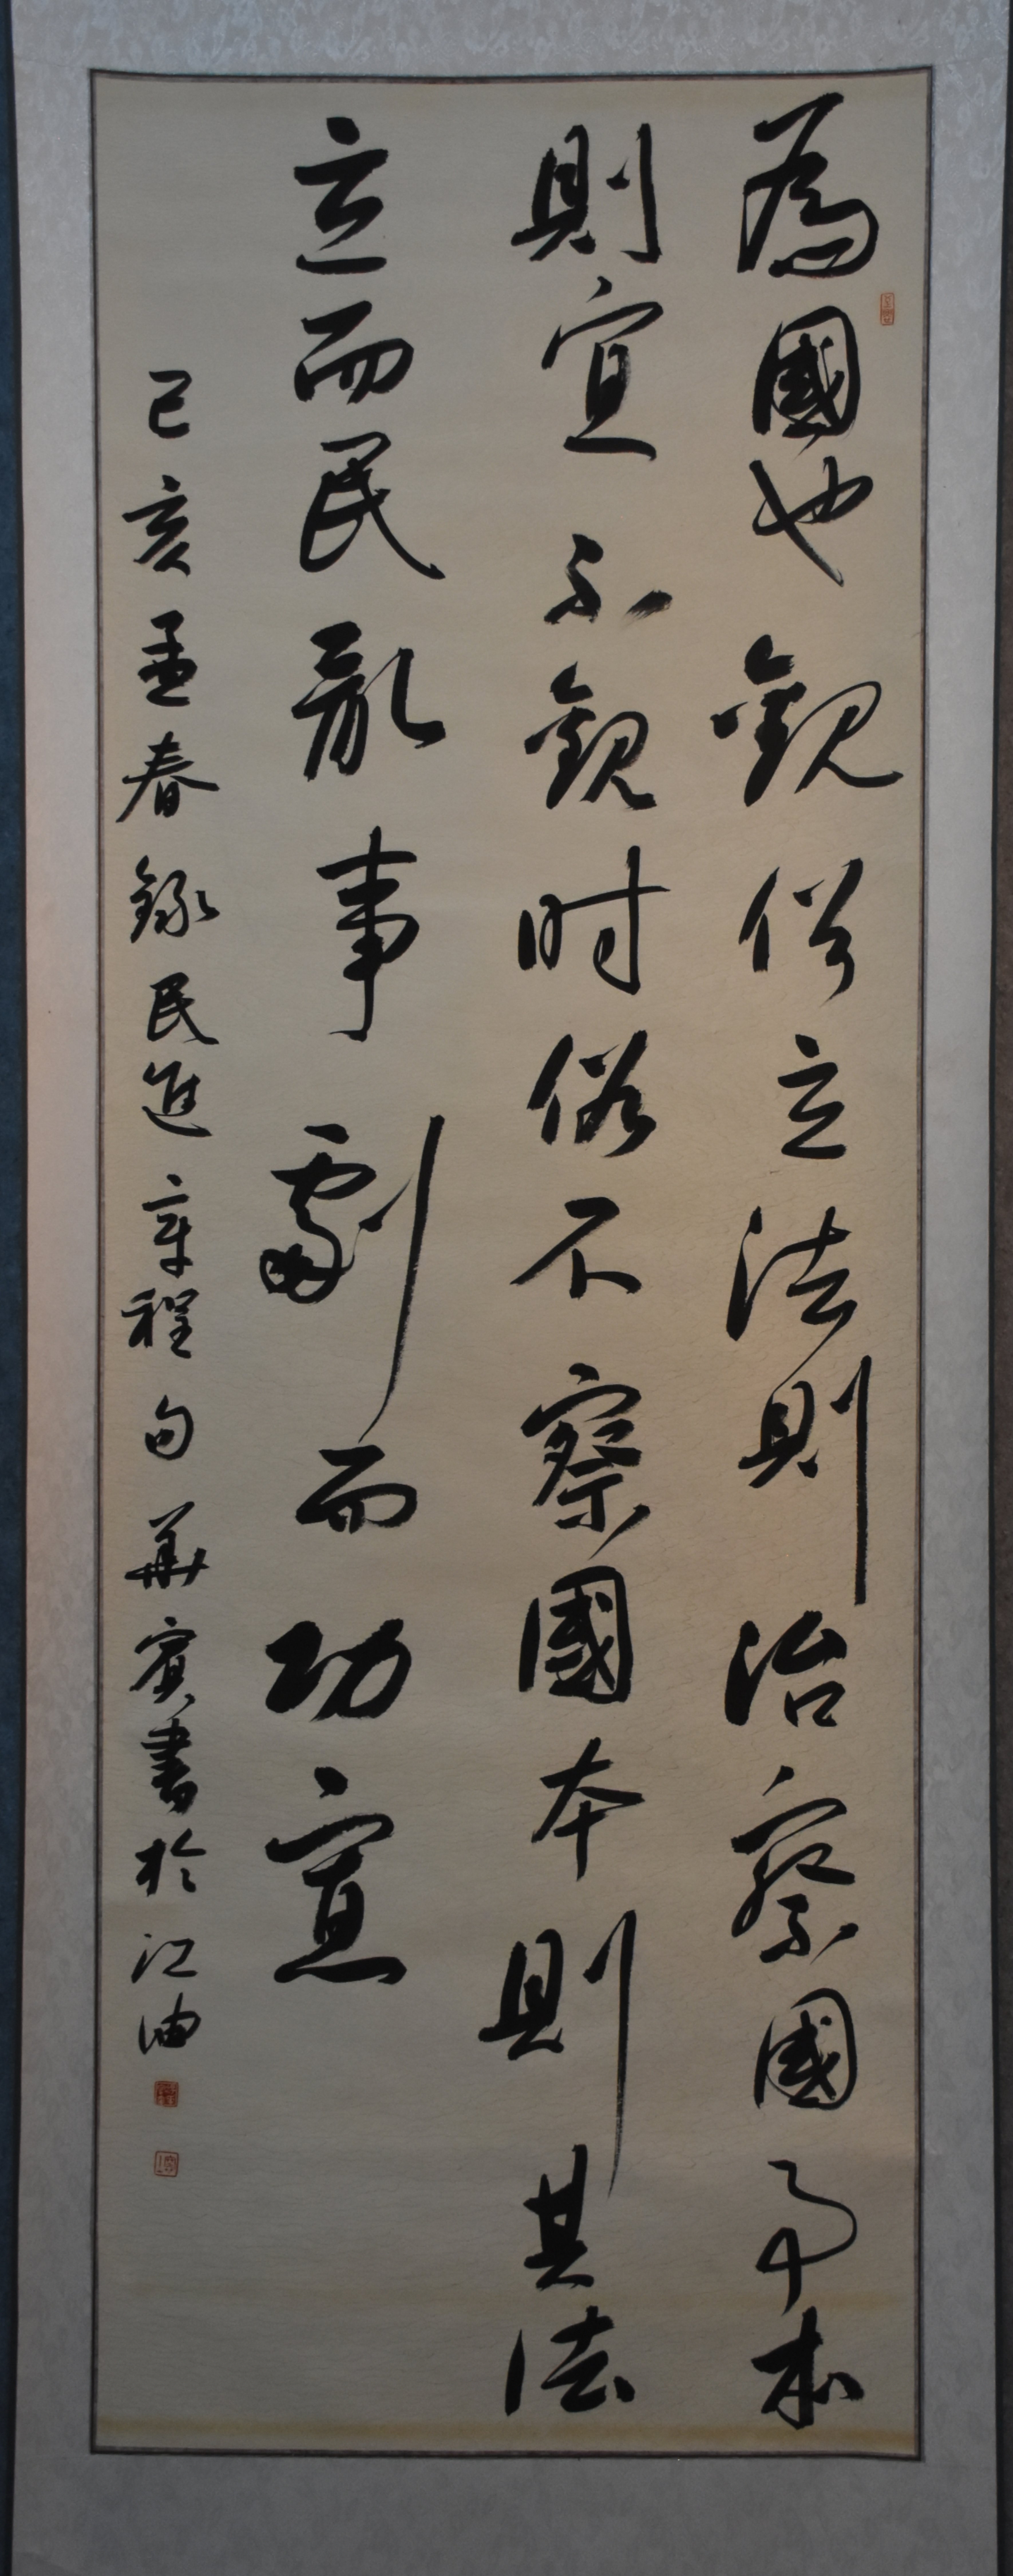 為國也觀俗立法則治察國事本
則宜不觀时俗不察國本則其法
立而民亂事劇而功寡
己亥孟春錄民進章程句華賓書於江油